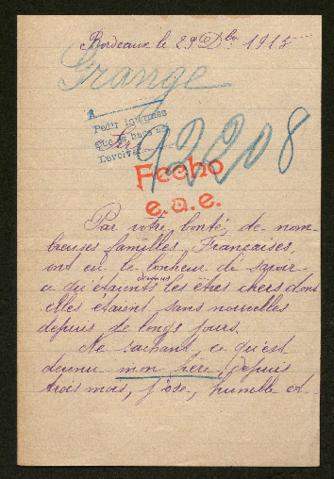 Bordeaux le 29 Dbre 1915
Grange
Sire
92208
Fecho
e.a.e.
Par votre bonté, de nom-
breuses familles Françaises,
ont eu le bonheur de savoir
ce qu'étaient devenus les êtres chers dont
elles étaient sans nouvelles
depuis de longs jours.
Ne sachant ce qu'est
devenu mon père, depuis
trois mois, j'ose, humble et